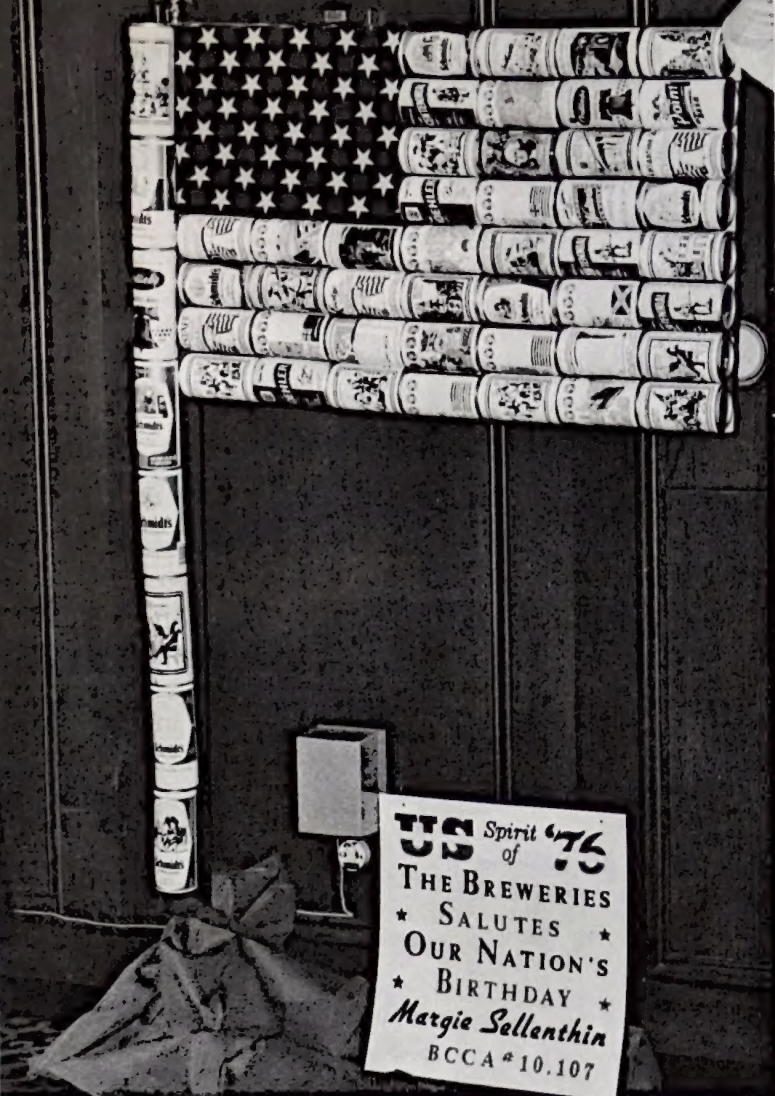 Schmidts
Schmidts
Schmidts
Schmidts
US Spirit of '76
THE BREWERIES
SALUTES
OUR NATION'S
BIRTHDAY
Margie Sellenthin
BCCA #10,107